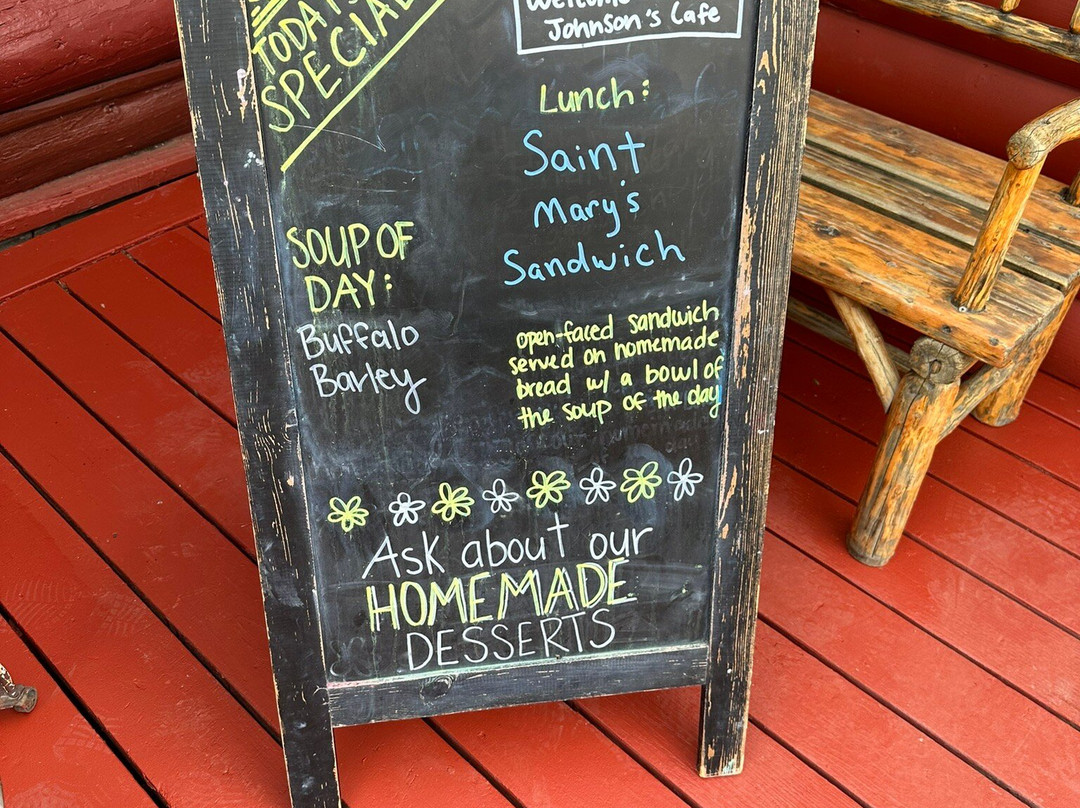 TODAY'S
SPECIAL
Welcome
Johnson's Cafe
Lunch:
Saint
Mary's
Sandwich
open-faced sandwich
served on homemade
bread w/ a bowl of
the soup of the day
SOUP OF
DAY:
Buffalo
Barley
Ask about our
HOMEMADE
DESSERTS